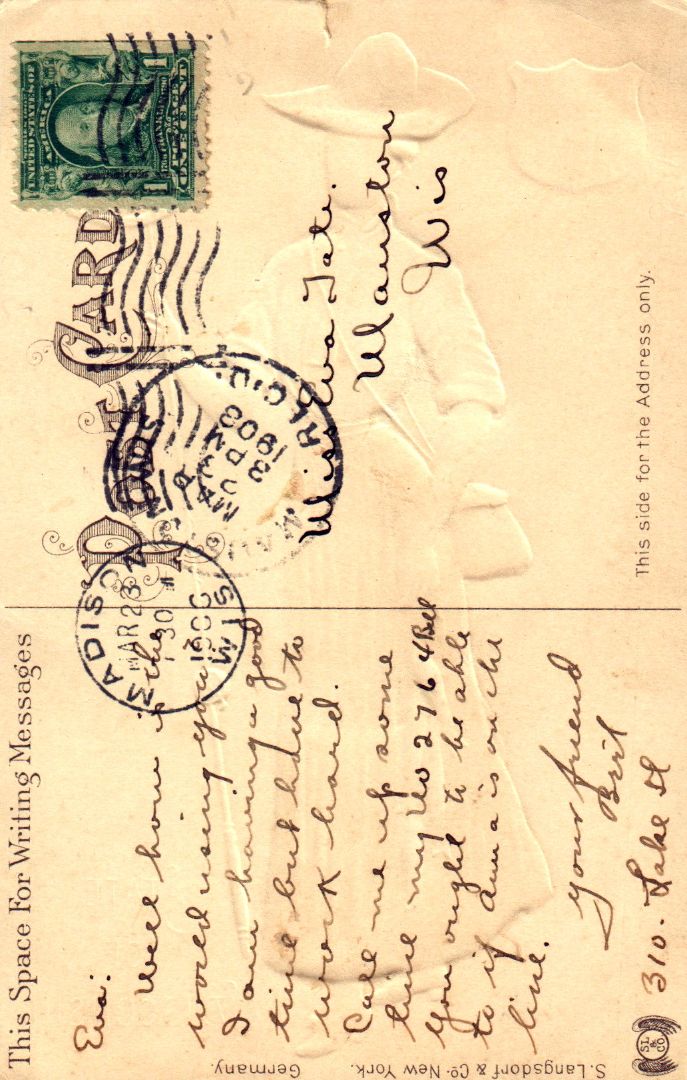 This Space For Writing Messages
Eva:
Well how is the
world using you
I am having a good
time but have to
work hard.
Call me up some
time my No 276 4 Bell
you ought to be able
to if Anna is on the
line.
your friend
Birt
310. Lake St
POST CARD
UNITED STATES OF AMERICA
ONE CENT
1
1
MADISON
MAR 23
30
WIS
MAR
23
3 PM
1908
REC'D
Miss Eva Tate.
Mauston
Wis
This side for the Address only.
S. Langsdorf & Co. New York.
Germany.
S.L. & CO